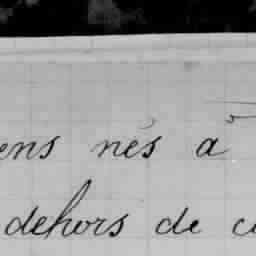 ens nés a
dehors de c